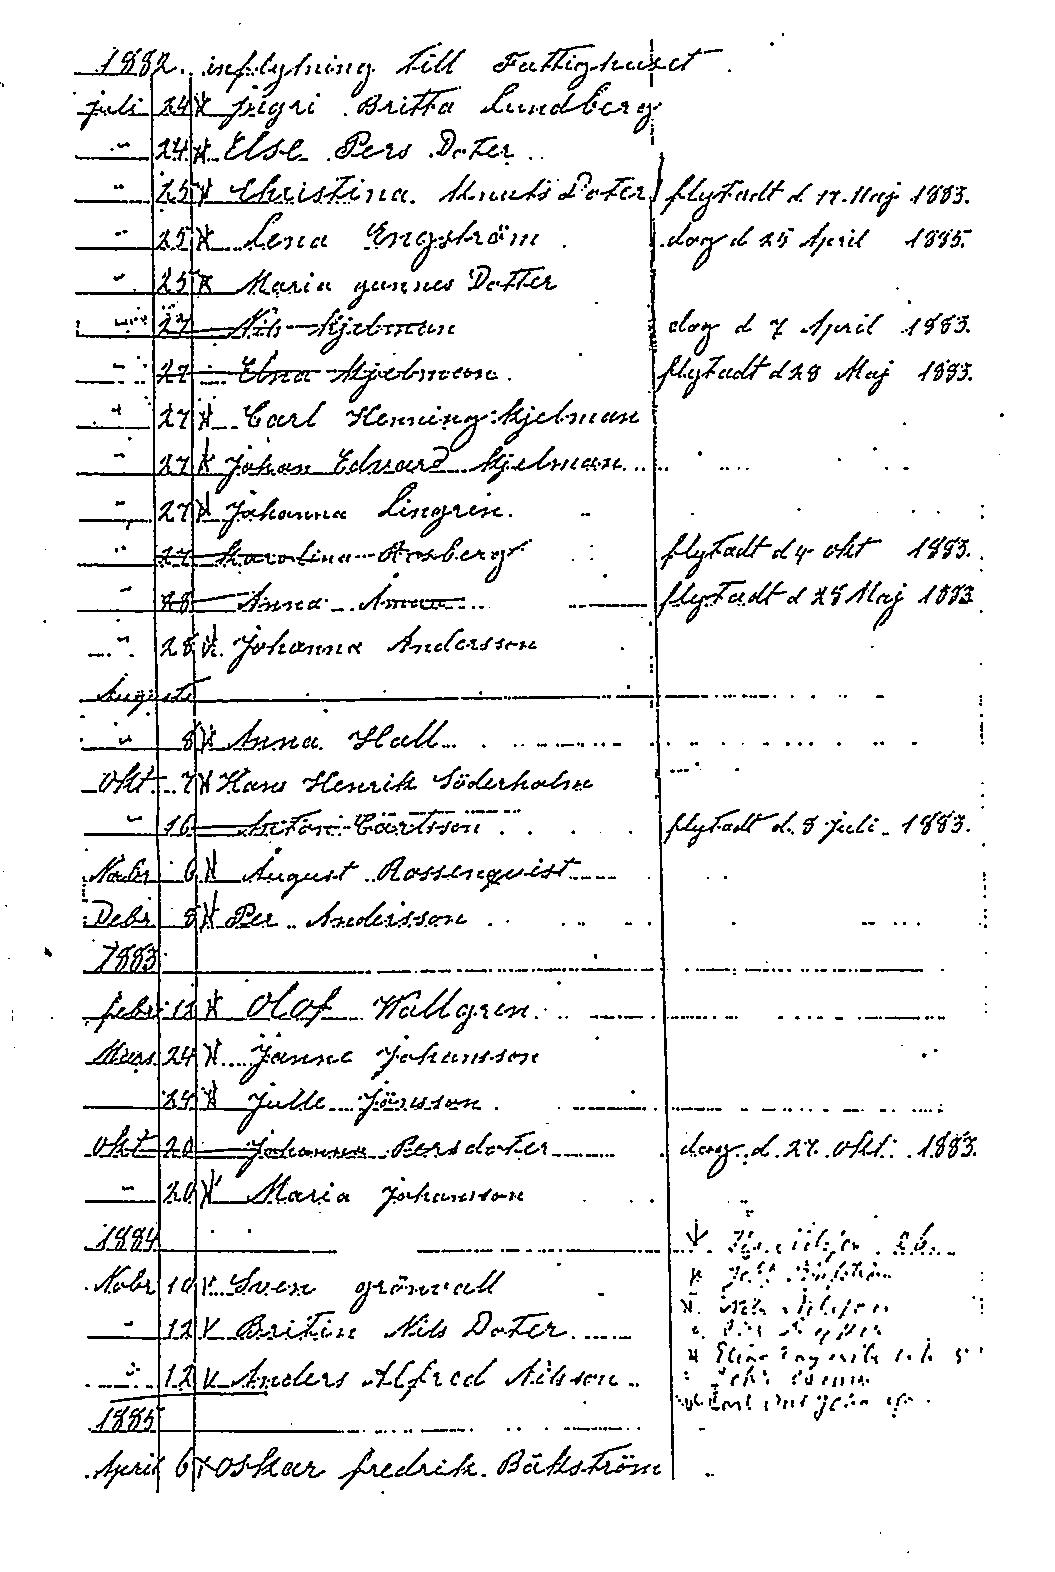 1882. inflytning till Fattighuset
juli 24 Jngri Britta Lundberg
" 24 Else Pers Doter
" 25 Christina Knuts Doter flystadt d 17. Maj 1883.
" 25 Lena Engström dog d 25 April 1885.
" 25 Maria gunnes Dotter
" 27 Nils Kjelman dog d 7 April 1883.
" 27 Elna Kjelman. flystadt d 28 Maj 1883.
" 27 Carl Henning Kjelman
" 27 Johan Edvard Kjelman
" 27 Johanna Lingrin.
" 27 Karolina Rosberg flystadt d 4 okt 1883.
" 28 Anna flystadt d 28 Maj 1883
" 28 Johanna Andersson
Augusti
" 8 Anna Hall
Okt 7 Hans Henrik Söderholm
" 16 Anton Carlsson flystadt d. 8 Juli 1883.
Nobr 6 August Rossenquist
Debr 8 Per Andersson
1883
febr 15 Olof Wallgren.
Mars 24 Janne Johansson
24 Julle Jönsson.
Okt 20 Johanna Persdoter dog d. 27. okt. 1883.
" 20 Maria Johansson
1884
Nobr 10 Sven grönvall
" 12 Britin Nils Doter
" 12 Anders Alfred Nilsson
1885
April 6 Oskar fredrik Bäkström